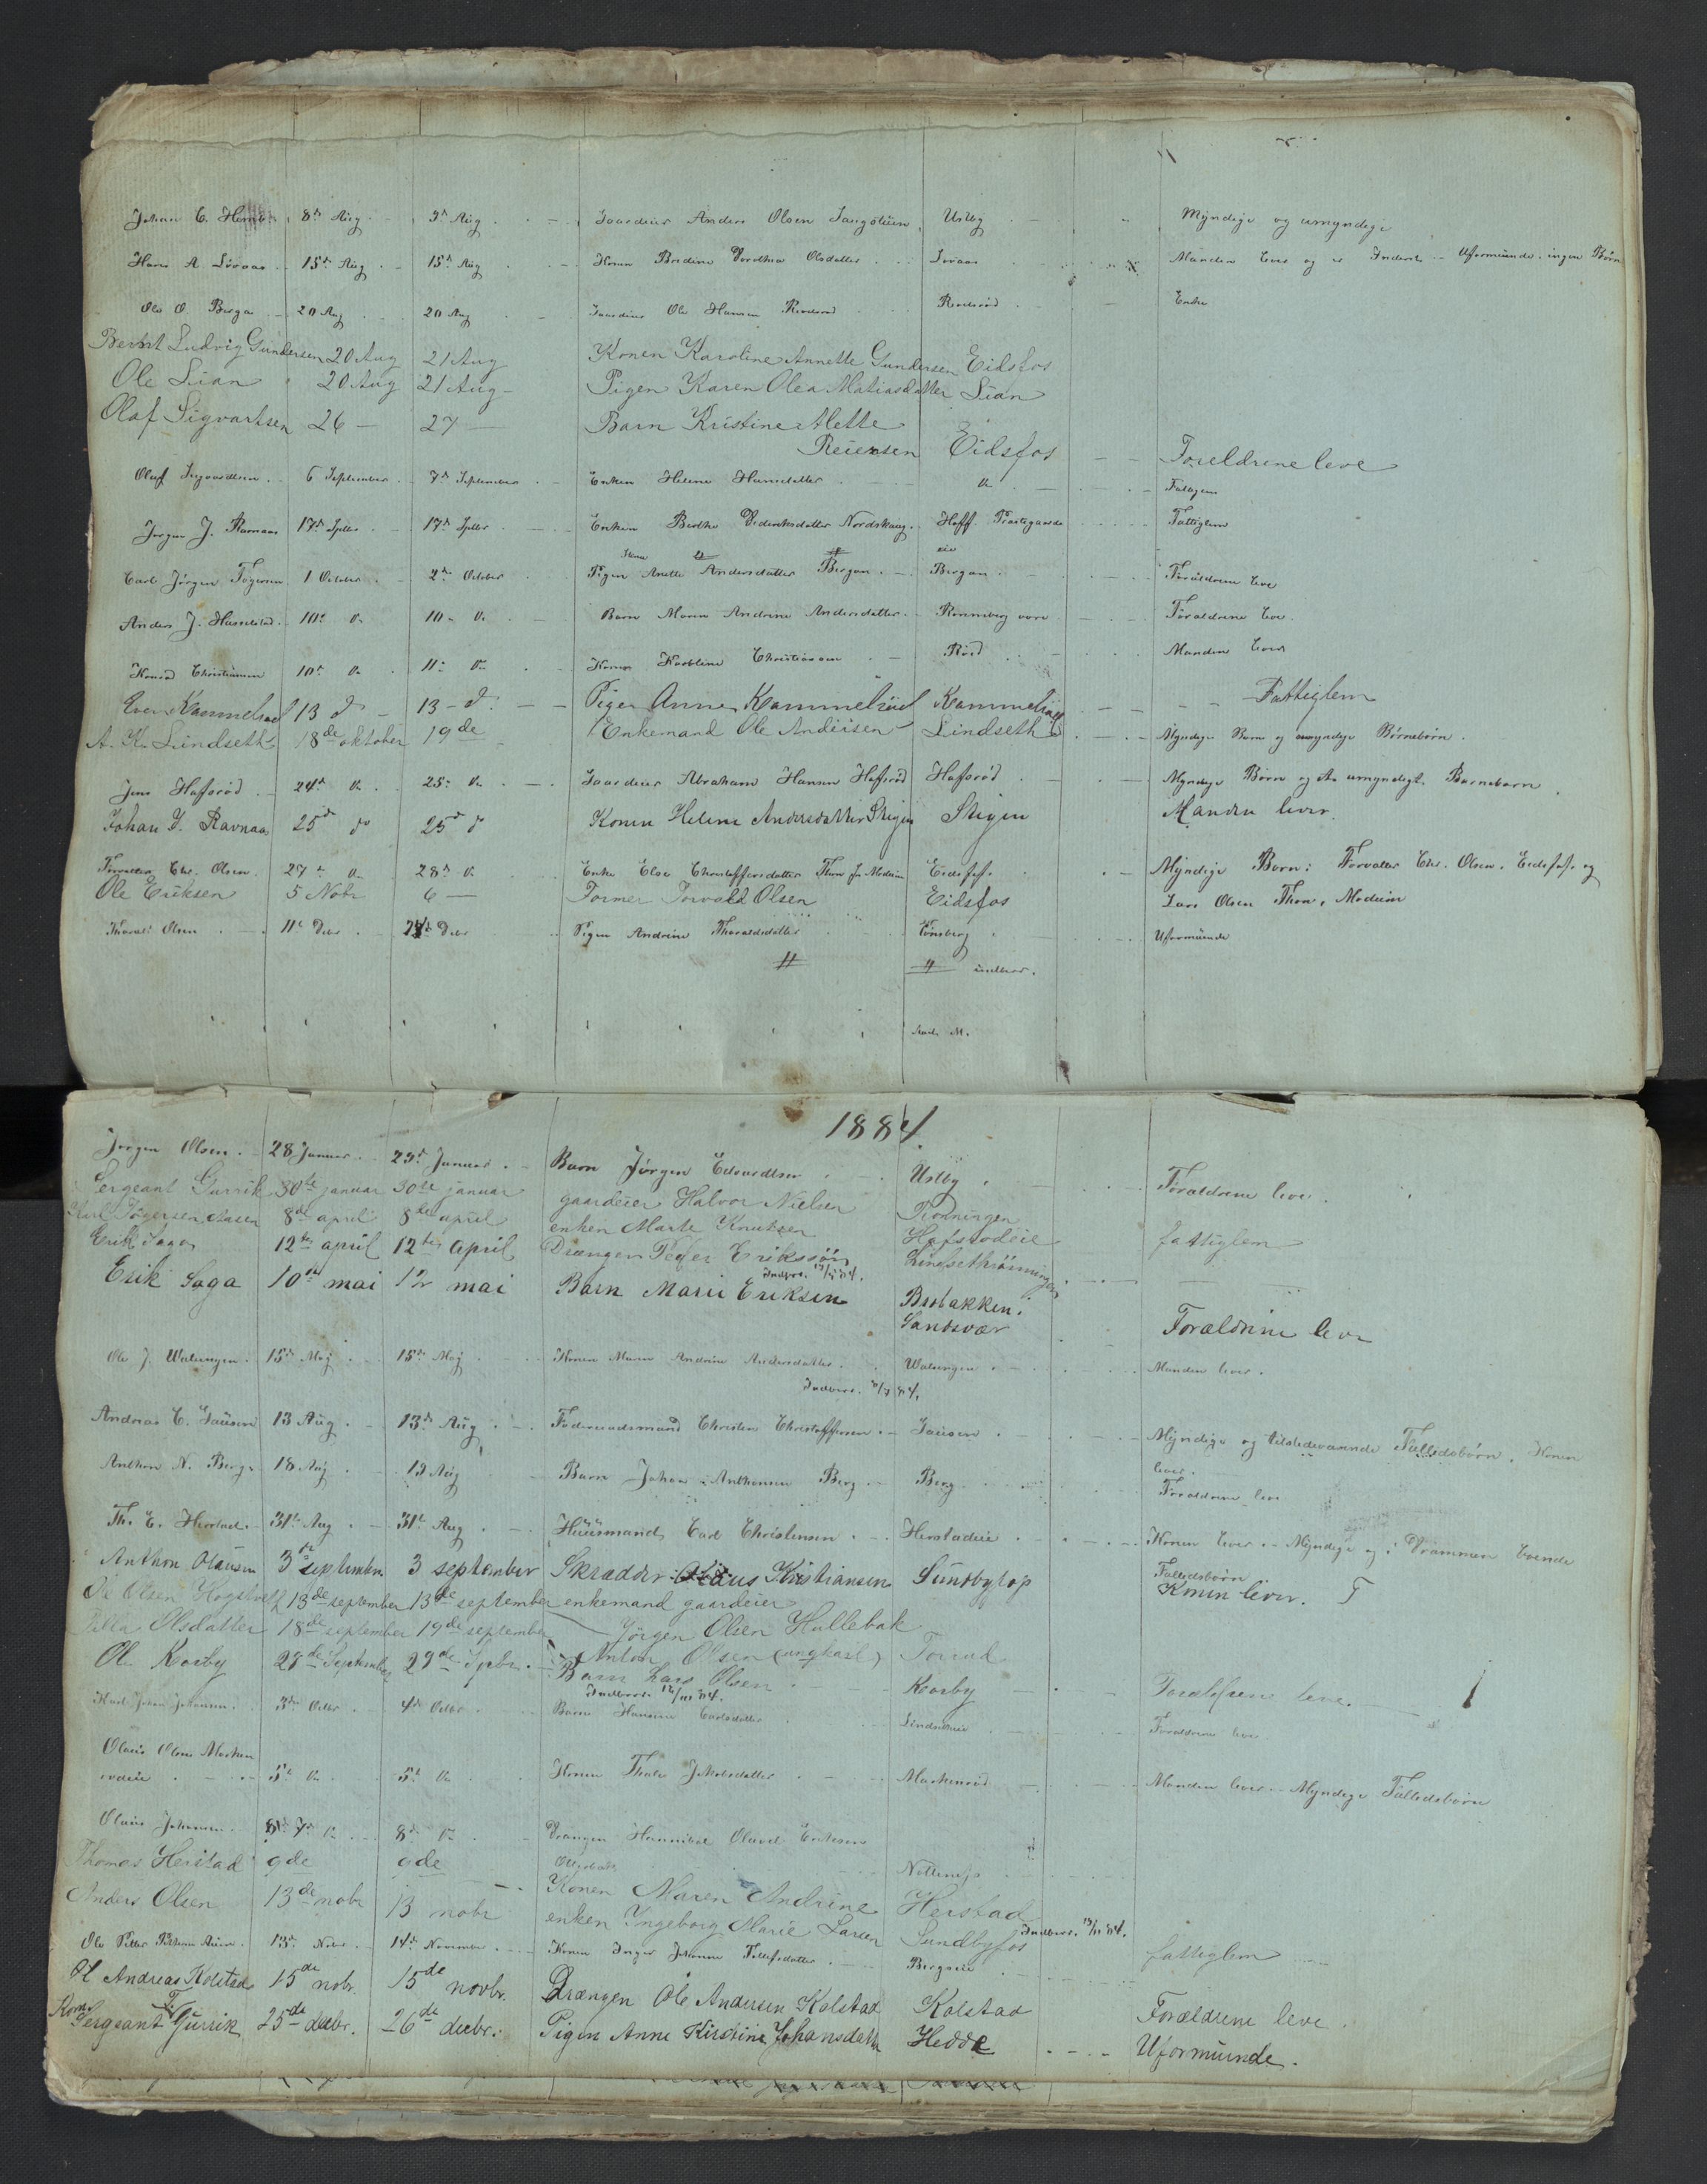 Johan C. 8de Aug 9de Aug Gaardeier Anders Olsen Usteby Myndige og umyndige
Hans A. Løvaas 15de Aug 15de Aug Konen Bredine Dorthea Olsdatter Løvaas Manden lever og er Inderst - Uformuende. ingen Børn
Ole O. Berga 20 Aug 20 Aug Gaardeier Ole Hansen Enke
Bernt Ludvig Gundersen 20 Aug 21 Aug Konen Karoline Annette Gundersen Eidsfos
Ole Lian 20 Aug 21 Aug Pigen Karen Olea Matiasdatter Lian
Olaf Sigvartsen 26 27 Barn Kristine Alette
Reiersen Eidsfos Foreldrene leve
Oluf Sigvardtsen 6 September 7de September Enken Helene Hansdatter Do Fattiglem
Jørgen J. Ravnaas 17de Septbr 17de Septbr Enken Berthe Dideriksdatter Nordskaug Hoff Præstegaards Fattiglem
eie
Carl Jørgen Tøgersen 1 October 2den October Pigen Anette Andersdatter Bergan Bergan Forældrene leve
Anders J. Hasselstad 10de Do 10 Do Barn Maren Andrine Andersdatter Rønneberg øvre Forældrene leve.
Konrad Christiansen 10de Do 11te Do Konen Karoline Christiansen Rød Manden lever
Even Kammelrud 13 d 13 d. Pigen Anne Kammelrud Kammelrud Fattiglem
A. K. Lindseth 18de oktober 19de Enkemand Ole Andersen Lindseth Myndige Børn og umyndige Børnebørn.
Jens Hafsrød 24de Do 25de Do Gaardeier Abraham Hansen Hafsrød Hafsrød Myndige Børn og et umyndigt Barnebarn.
Johan J. Ravnaas 25de do 25de d Konen Helene Andersdatter Stigen Stigen Manden lever.
Forvalter Chr. Olsen 27de Do 28de Do Enke Else Christoffersdatter Thon fra Modum Eidsfos Myndige Børn: Forvalter Chr. Olsen, Eidsfos. og
Ole Eriksen 5 Nobr 6 Former Torvald Olsen Eidsfos Lars Olsen Thon, Modum
Thorvald Olsen 11te Debr Debr Pigen Andrine Thoraldsdatter Tønsberg Uformuende
indber.
1884.
Jørgen Olsen 28 Januar 29de Januar Barn Jørgen Edvardtsen Usteby Forældrene leve.
Sergeant Gurrik 30te januar 30te januar gaardeier Halvor Nielsen Rønningen
Karl Tøgersen Aasen 8de april 8de april enken Marte Knutsen Hafsrødeie fattiglem
Erik Saga 12te april 12te april Drængen Peder Erikssøn Lindsethrønningen
Indber. 13/5 84.
Erik Saga 10de mai 12 mai Barn Marie Eriksen Brobakken. Forældrene leve
Sandsvær
Ole J. Walungen 15de Maj 15de Maj Konen Maren Andrine Andersdatter Walungen Manden lever.
Indber.
Andreas C. Sausen 13 Aug 13de Aug Føderaadsmand Christen Christoffersen Sausen Myndige og tilstedeværende Fællesbørn. Konen
lever.
Anthon N. Berg 18 Aug 19 Aug Barn Johan Anthonsen Berg Berg Forældrene leve
Th. E. Herstad 31te Aug 31te Aug Huusmand Carl Christensen Herstadeie Konen lever. Myndige og i Drammen boende
Fællesbørn
Anthon Olausen 3de september 3 september Skrædder Olaus Kristiansen Sundbyfos Konen lever.
Ole Olsen Hogstvedt 13de september 13de september enkemand gaardeier
Jørgen Olsen Hullebak
Pilla Olsdatter 18de september 19de september Anton Olsen (ungkarl) Torrud
Ole Korby 28de September 29de Septbr. Barn Lars Olsen Korby Forældrene leve.
Indber. 12/10 84.
Karl Johan Johansen 3die Octbr 4de Octbr Barn Hansine Carlsdatter Forældrene leve
Olaus Olsen
5te Do 5te Do Konen Thale Jakobsdatter Manden lever. Myndige Fællesbørn
Olaus Johansen 7de Do 8de Do Drængen Hannibal Olaud Eriksen
Thomas Herstad 9de 9de Konen Maren Andrine Herstad
Anders Olsen 13de nobr 13 nobr enken Ingeborg Marie Larsen Sundbyfos fattiglem
Indber. 13/11 84.
Ole Petter 13de Nobr 14de November Konen Inger Johanne Tollefsdatter Bergseie
Ol Andreas Kolstad 15de nobr. 15de novbr. Drængen Ole Andersen Kolstad Kolstad Forældrene leve.
Sergeant Gurrik 25de decbr. 26de decbr. Pigen Anne Kirstine Johansdatter Hedde Uformuende.